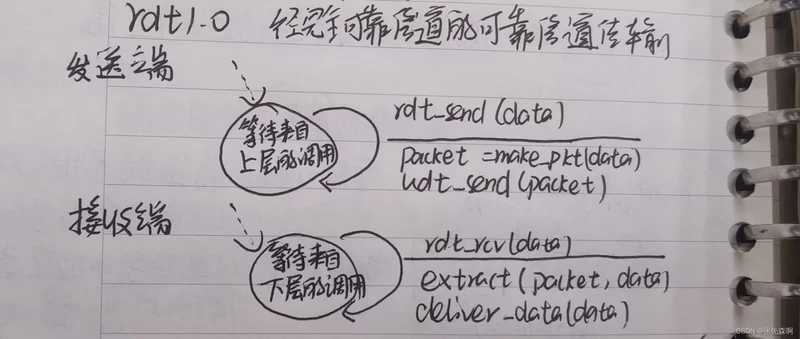 rdt1.0 经完全可靠信道的可靠信道传输
发送端
等待来自
上层的调用
rdt_send(data)
packet =make_pkt(data)
udt_send(packet)
接收端
等待来自
下层的调用
rdt_rcv(data)
extract(packet, data)
deliver_data(data)
CSDN @张先森啊